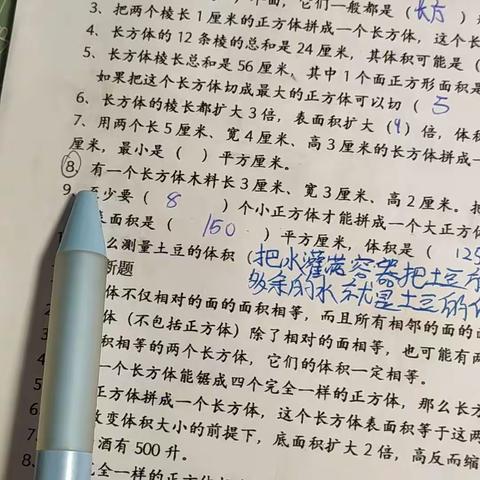 平面，它们一般都是（长方）
3、把两个棱长1厘米的正方体拼成一个长方体，这个长
4、长方体的12条棱的总和是24厘米，其体积可能是（
5、长方体棱长总和是56厘米，其中1个面正方形面积是
如果把这个长方体切成最大的正方体可以切（ 5
6、长方体的棱长都扩大3倍，表面积扩大（9）倍，体积
7、用两个长5厘米、宽4厘米、高3厘米的长方体拼成一
厘米，最小是（ ）平方厘米。
8、有一个长方体木料长3厘米、宽3厘米、高2厘米。把
9、至少要（ 8 ）个小正方体才能拼成一个大正方体
表面积是（ 150 ）平方厘米，体积是（ 125
么测量土豆的体积（把水灌满容器把土豆
多余的水就是土豆的体
断题
体不仅相对的面的面积相等，而且所有相邻的面的
体（不包括正方体）除了相对的面相等，也可能有两
积相等的两个长方体，它们的体积一定相等。
一个长方体能锯成四个完全一样的正方体，那么长方
正方体拼成一个长方体，这个长方体表面积等于这两
改变体积大小的前提下，底面积扩大2倍，高反而缩
酒有500升。
8、
完全一样的正方体